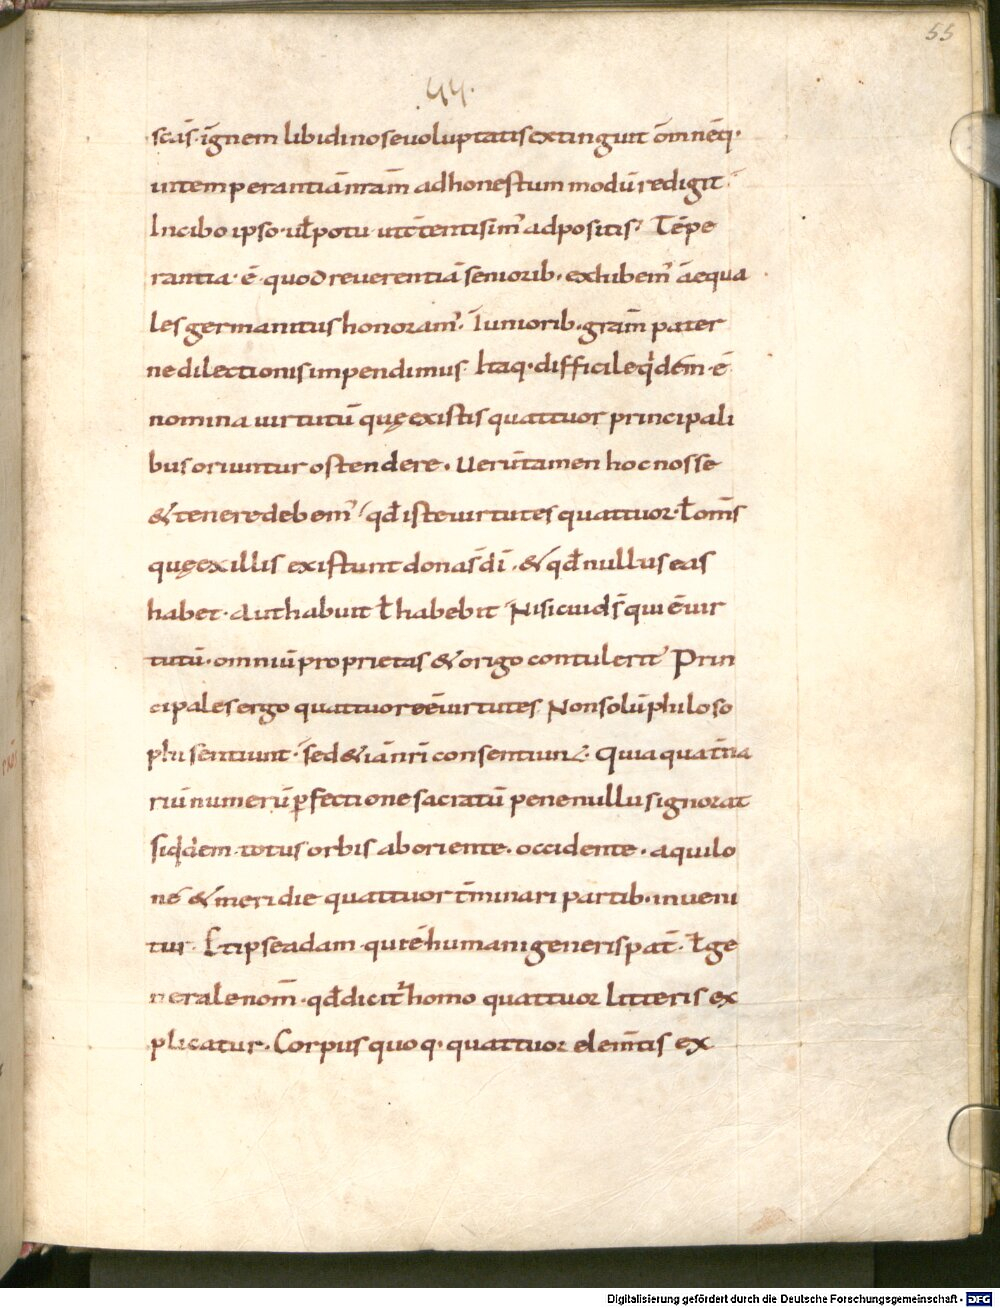 55
44.
scās· īgnem libidinose voluptatis extinguit ōmnēq·
intemperantiā nr̄am̄ ad honestum modū redigit·
In cibo ipso· ul̄ potu· ut c̄tentisim᾽ adpositis· Tēpe
rantia· ē· quod reverentiā seniorib· exhibem᾽ āequa
les germanitus honoram᾽· Iunioribꝰ· gram̄ pater
ne dilectionis impendimus· Itaq· difficile qͥdem· ē
nomina uirtutū quę ex istis quattuor principali
bus oriuntur ostendere· Uerūtamen hoc nosse
& tenere debem᾽ qd̄ iste uirtutes quattuor· ł om̄s
quę ex illis existunt dona s̄ dī· & qd̄ nullus eas
habet· aut habuit ł habebit Nisi cui d̄s qui ē uir
tutū· omniū proprietas & origo contulerit Prin
cipales ergo quattuor eē uirtutes Non solū philoso
phi sentiunt· sed & iā nr̄i consentiunt· Quia quat̄na
riū numerū ꝑfectione sacratū pene nullus ignorat
siqͥdem totus orbis ab oriente· occidente· aquilo
ne & meridie quattuor t̄minari partib· inueni
tur· Et ipse adam· qui ē humani generis pat̄· ł ge
nerale nom̄· qd̄ dicit᾽ homo quattuor litteris ex
plicatur· Corpus quoq· quattuor elem̄tis ex
Digitalisierung gefördert durch die Deutsche Forschungsgemeinschaft - DFG